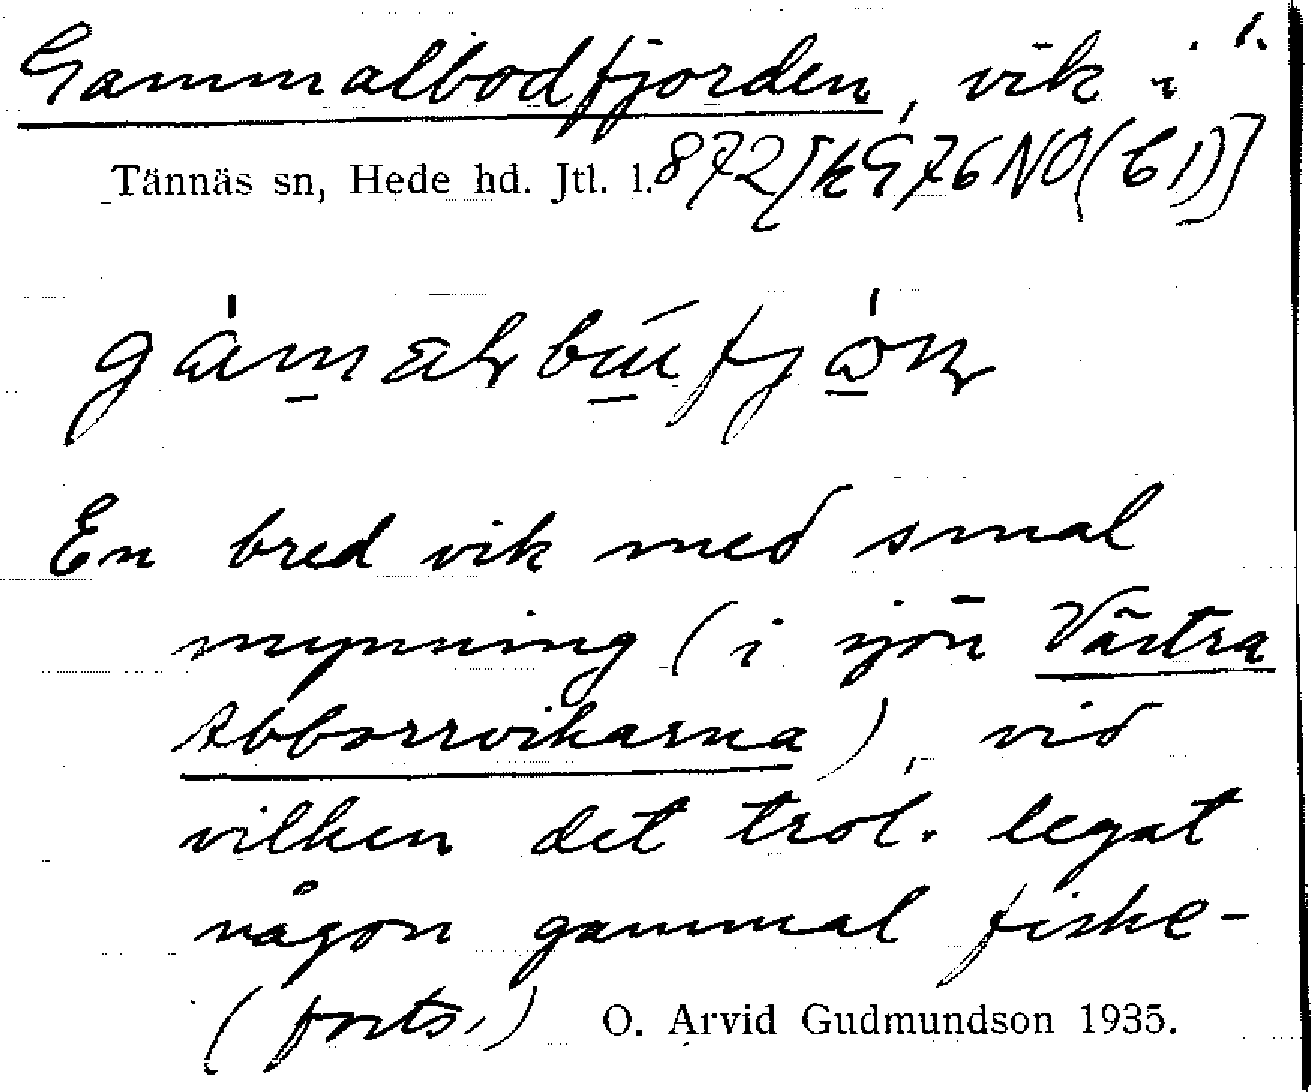 1.
Gammalbodfjorden, vik i
Tännäs sn, Hede hd. Jtl. l. 872
En bred vik med smal
mynning (i sjön Västra
Abborrvikarna), vid
vilken det trol. legat
någon gammal fiske-
(forts.) O. Arvid Gudmundson 1935.